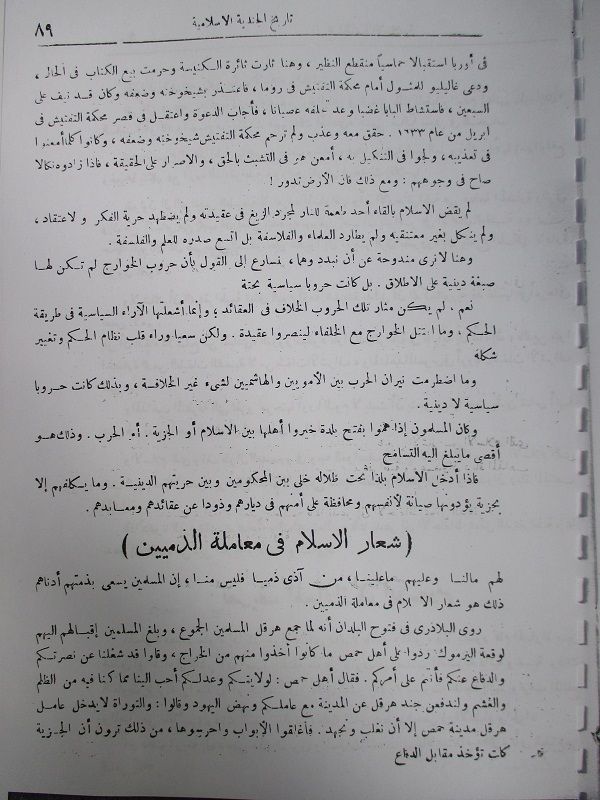 تاريخ الجندية الاسلامية ٨٩
فى أوربا استقبالا حماسيا منقطع النظير ، وهنا ثارت ثائرة الكنيسة وحرمت بيع الكتاب فى الحال ،
ودعى غاليليو للمثول أمام محكمة التفتيش فى روما ، فاعتذر بشيخوخته وضعفه وكان قد نيف على
السبعين ، فاستشاط البابا غضبا وعد تخلفه عصيانا ، فأجاب الدعوة واعتقل فى قصر محكمة التفتيش فى
ابريل من عام ١٦٣٣ . حقق معه وعذب ولم ترحم محكمة التفتيش شيخوخته وضعفه ، وكانوا كلما أمعنوا
فى تعذيبه ، ولجوا فى التنكيل به ، أمعن هو فى التشبث بالحق ، والاصرار على الحقيقة ، فاذا زادوه نكالا
صاح فى وجوههم : ومع ذلك فان الأرض تدور !
لم يقض الاسلام بالقاء أحد طعمة للنار لمجرد الزيغ فى عقيدته ولم يضطهد حرية الفكر والاعتقاد ،
ولم ينكل بغير معتنقيه ولم يطارد العلماء والفلاسفة بل اتسع صدره للعلم والفلسفة .
وهنا لانرى مندوحة عن أن نبدد وهما ، فنسارع إلى القول بأن حروب الخوارج لم تكن لها
صبغة دينية على الاطلاق . بل كانت حروبا سياسية بحتة
نعم . لم يكن مثار تلك الحروب الخلاف فى العقائد ؛ وإنما أشعلتها الآراء السياسية فى طريقة
الحكم ، وما اقتتل الخوارج مع الخلفاء لينصروا عقيدة . ولكن سعيا وراء قلب نظام الحكم وتغيير
شكله
وما اضطرمت نيران الحرب بين الأمويين والهاشميين لشىء غير الخلافة ، وبذلك كانت حروبا
سياسية لا دينية .
وكان المسلمون إذا هموا بفتح بلدة خيروا أهلها بين الاسلام أو الجزية . أو الحرب . وذلك هو
أقصى مايبلغ اليه التسامح
فاذا أدخل الاسلام بلدا تحت ظلاله خلى بين المحكومين وبين حريتهم الدينية . وما يكلفهم إلا
بجزية يؤدونها صيانة لأنفسهم ومحافظة على أمنهم فى ديارهم وذودا عن عقائدهم ومعابدهم .
( شعار الاسلام فى معاملة الذميين )
لهم مالنا وعليهم ماعلينا ، من آذى ذميا فليس منا ، إن المسلمين يسعى بذمتهم أدناهم
ذلك هو شعار الاسلام فى معاملة الذميين .
روى البلاذرى فى فتوح البلدان أنه لما جمع هرقل للمسلمين الجموع ، وبلغ المسلمين إقبالهم اليهم
لوقعة اليرموك ردوا على أهل حمص ما كانوا أخذوا منهم من الخراج ، وقالوا قد شغلنا عن نصرتكم
والدفاع عنكم فأنتم على أمركم . فقال أهل حمص : لولايتكم وعدلكم أحب الينا مما كنا فيه من الظلم
والغشم ولندفعن جند هرقل عن المدينة مع عاملكم ونهض اليهود وقالوا : والتوراة لايدخل عامل
هرقل مدينة حمص إلا أن نغلب ونجهد . فأغلقوا الأبواب واحرسوها ، من ذلك ترون أن الجزية
كانت تؤخذ مقابل الدفاع